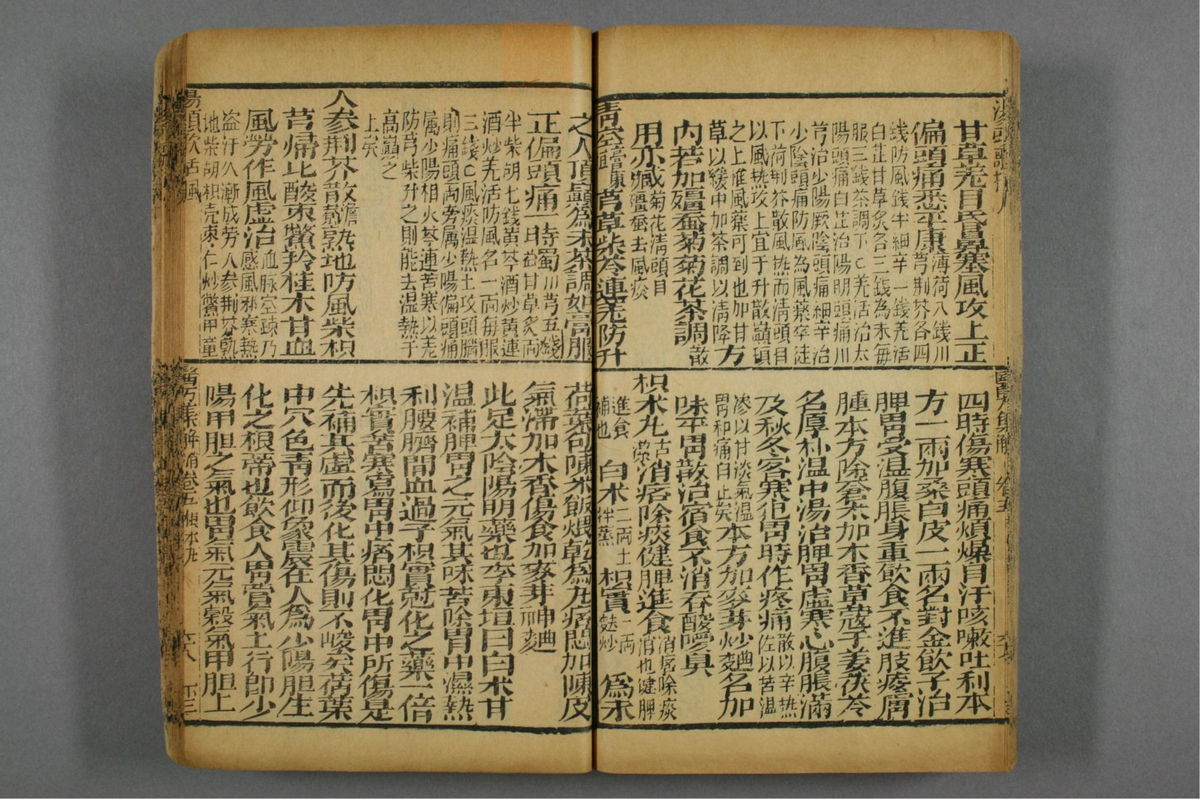 甘草羌目昏鼻塞風攻上正
偏頭痛悉平康薄荷八錢川芎荆芥各四
錢防風錢半細辛一錢羌活
白芷甘草炙各三錢為末每
服三錢茶調下○羌活治太
陽頭痛白芷治陽明頭痛川
芎治少陽厥陰頭痛細辛治
少陰頭痛防風為風藥卒徒
下荷荆芥散風熱而清頭目
以風熱攻上宜于升散巔頂
之上惟風藥可到也加甘
草以緩中加茶調以清降
方
內若加殭蚕菊菊花茶調散
用亦臧菊花清頭目
殭蚕去風痰
青空芎草柴芩連羌防升
之入頂巔為末茶調如膏服
正偏頭痛一時蜀川芎五錢
甘草炙一兩
半柴胡七錢黃芩酒炒黃連
酒炒羌活防風各一兩每服
三錢○風痰濕熱上攻頭腦
則痛頭兩旁属少陽偏頭痛
属少陽相火芩連苦寒以羌
防芎柴升之則能去濕熱于
高巔之
上矣
人參荆芥散熟地防風柴枳
芎歸比酸棗鱉羚桂朮甘血
風勞作風虛治血脉空踈乃
感風邪寒熱
盜汗久漸成勞人參荆芥熟
地柴胡枳壳棗仁炒鱉甲童
醫方集解 卷五
四時傷寒頭痛煩燥自汗咳嗽吐利本
方一兩加桑白皮一兩名對金飲子治
脾胃受濕腹脹身重飲食不進肢痠膚
腫本方除蒼朮加木香草蔻子姜茯苓
名厚朴温中湯治脾胃虛寒心腹脹滿
及秋冬客寒犯胃時作疼痛散以辛热
佐以苦温
滲以甘淡氣温
胃和痛自止矣本方加麥芽炒麯名加
味平胃散治宿食不消吞酸噯臭
枳朮丸消痞除痰健脾進食消痞除痰
消也健脾
進食
補也
白朮二两土
拌蒸
枳實一两
麩炒
為末
荷葉包陳米飯煨乾為丸痞悶加陳皮
氣滯加木香傷食加麥芽神麯
此足太陰陽明藥也李東垣曰白朮甘
温補脾胃之元氣其味苦除胃中濕熱
利腰臍間血過于枳實尅化之藥一倍
枳實苦寒寫胃中痞悶化胃中所傷是
先補其虛而後化其傷則不峻矣荷葉
中穴色青形仰象震在人為少陽胆生
化之根蒂也飲食入胃營氣上行即少
陽甲胆之氣也胃氣元氣穀氣甲胆上
醫方集解